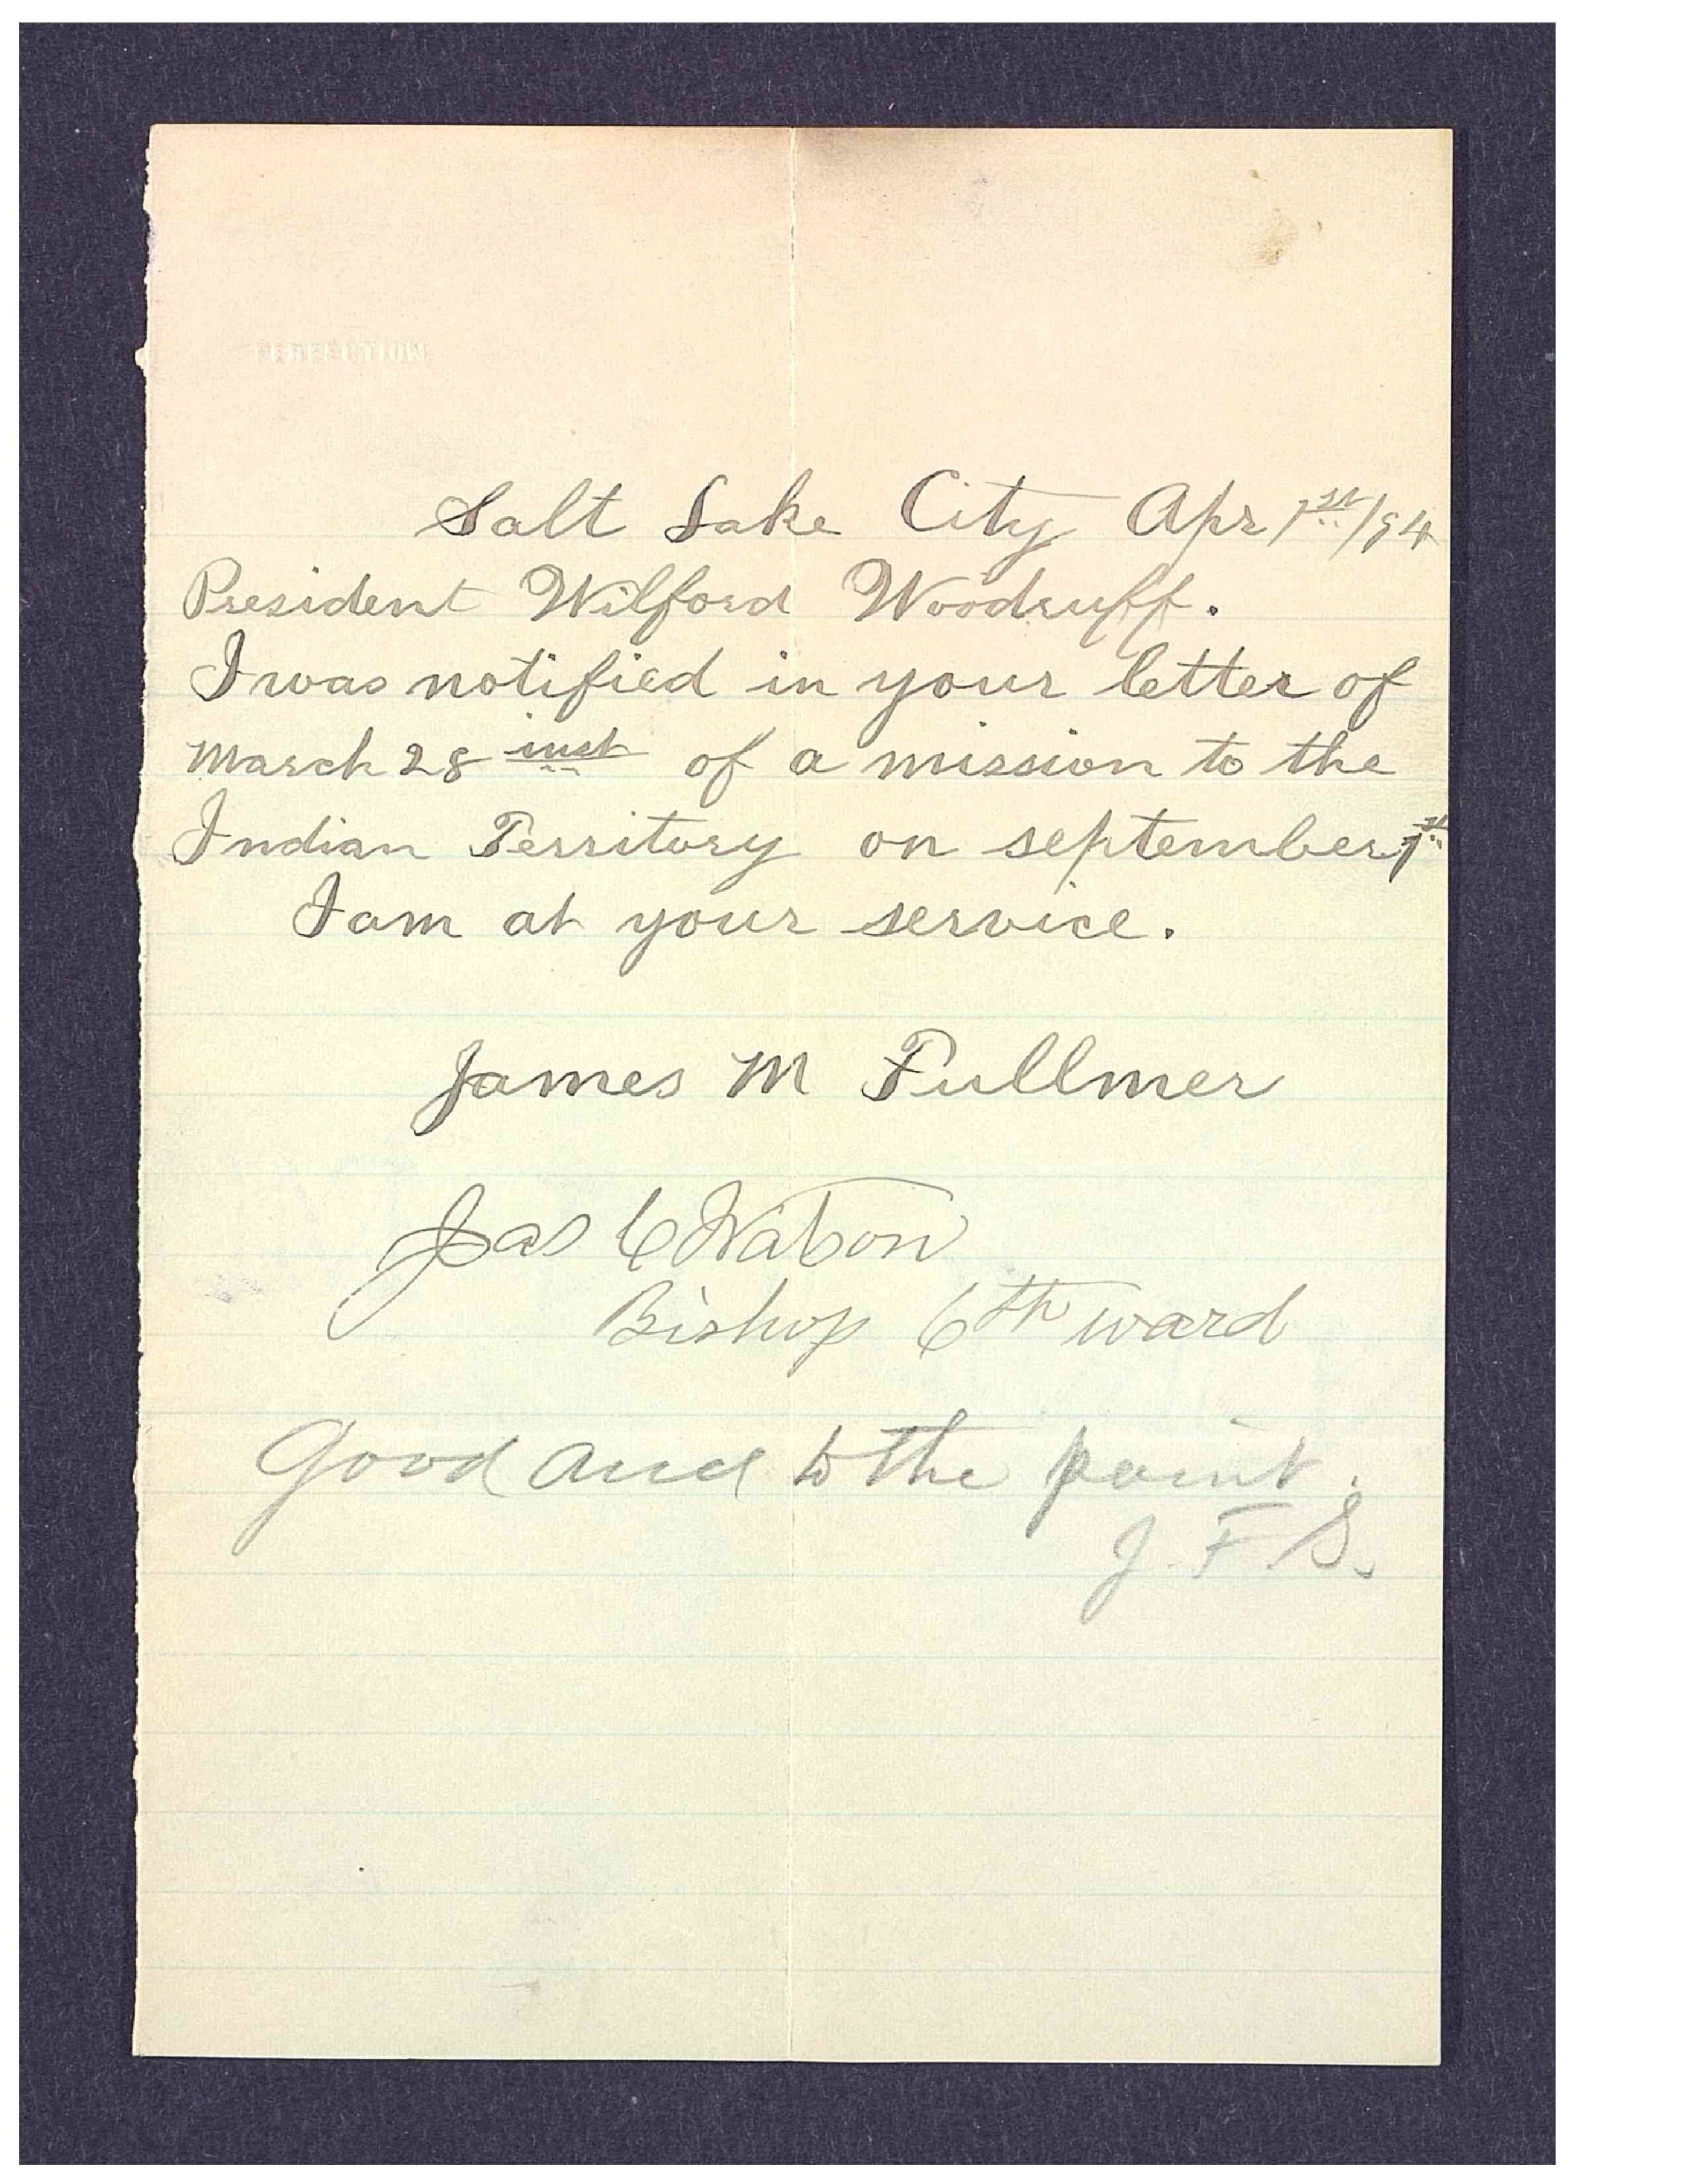 PERFECTION
Salt Lake City Apr 1st/94
President Wilford Woodruff.
I was notified in your letter of
March 28 inst of a mission to the
Indian Territory on september 1st
I am at your service.
James M Fullmer
Jas C Watson
Bishop 6th ward
Good and to the point.
J. F. S.